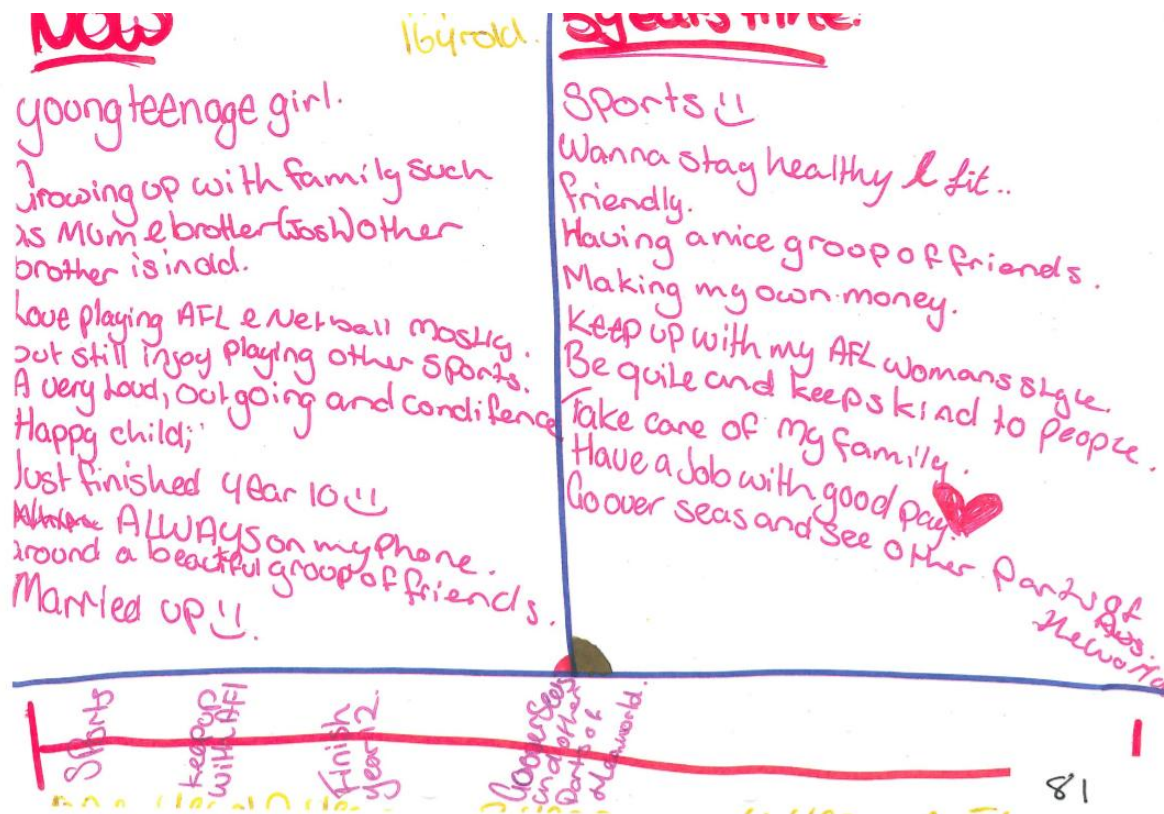 Now
16yrold.
young teenage girl.
Growing up with family such
as Mum & brother (Josh) other
brother is in add.
Love playing AFL & Netball mostly.
but still injoy playing other sports.
A very loud, outgoing and condifence
Happy child;
Just finished year 10
ALWAYS on my phone.
around a beautiful group of friends.
Married up
5years time.
Sports
Wanna stay healthy & fit..
friendly.
Having a nice groop of friends.
Making my own money.
Keep up with my AFL womans stgle.
Be quite and keeps kind to people.
Take care of my family.
Have a Job with good pay.
Go over seas and see other Parts of
Aus.
the world
Sports
keep up
with AFl
Finish
year 12.
Go over Seas
and other
Parts of
the world.
81